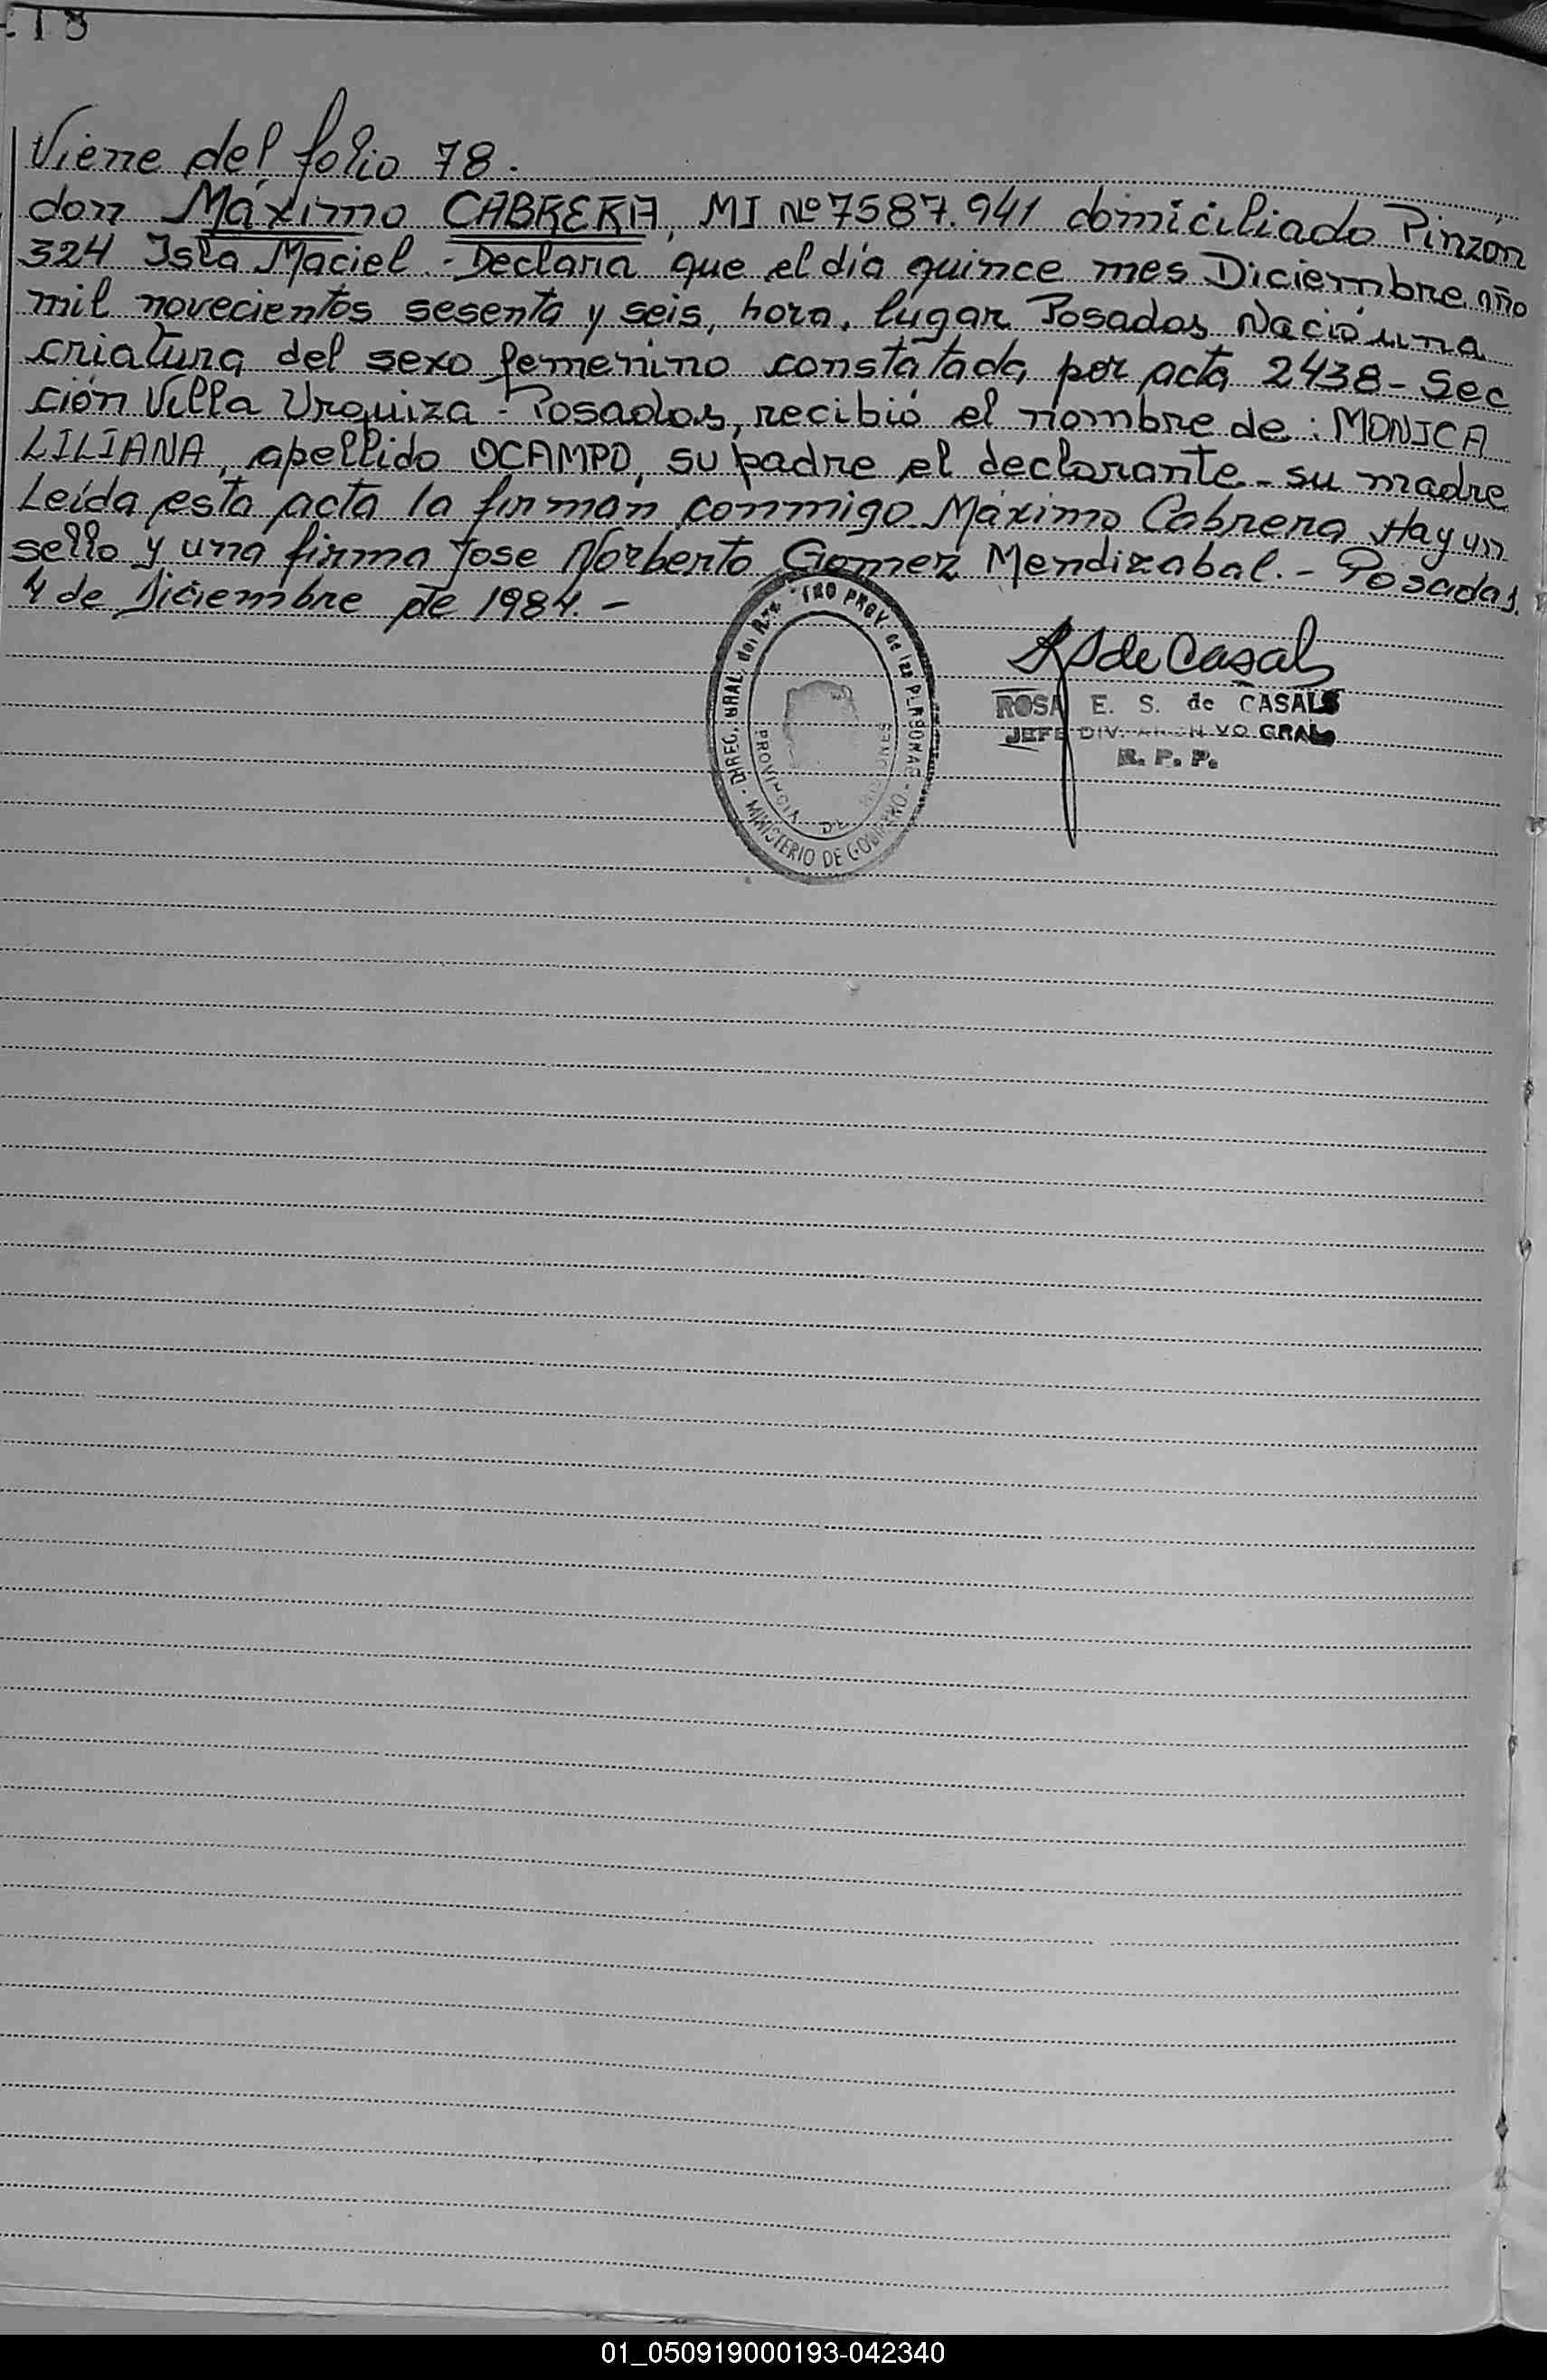 Viene del folio 78.
don Máximo CABRERA, MI Nº 7587.941 domiciliado Pinzón
324 Isla Maciel.- Declaria que el día quince mes Diciembre año
mil novecientos sesenta y seis, hora, lugar Posadas Nació una
criatura del sexo femenino constatada por acta 2438- Sec
ción Villa Urquiza - Posadas, recibió el nombre de: MONICA
LILIANA, apellido OCAMPO, su padre el declarante - su madre
Leída esta acta la firman conmigo Máximo Cabrera Hay un
sello y una firma Jose Norberto Gomez Mendizabal.- Posadas,
4 de Diciembre de 1984.-
de Casals
ROSA E. S. de CASALS
JEFE DIV. ARCHIVO GRAL
R. P. P.
PROV. de las PERSONAS
PROVINCIA DE MISIONES
MINISTERIO DE GOBIERNO
01_050919000193-042340